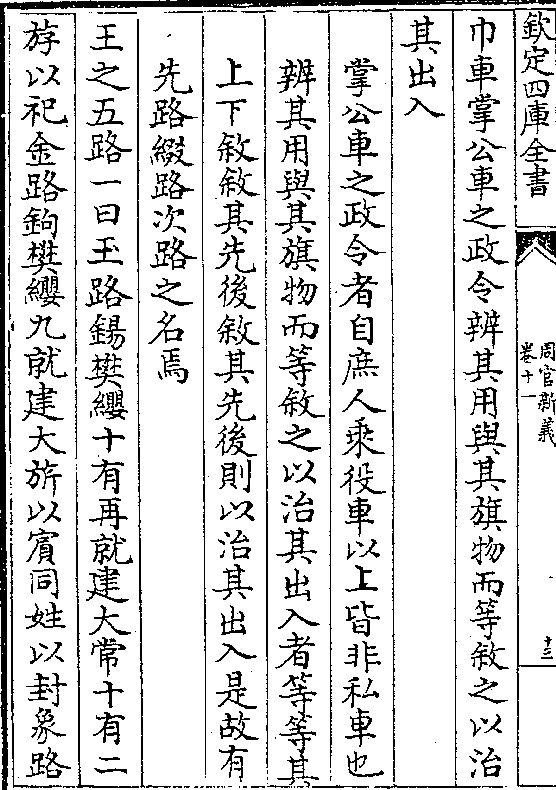 欽定四庫全書
周官新義
卷十一
十三
巾車掌公車之政令辨其用與其旗物而等敘之以治
其出入
掌公車之政令者自庶人乘役車以上皆非私車也
辨其用與其旗物而等敘之以治其出入者等等其
上下敘敘其先後敘其先後則以治其出入是故有
先路綴路次路之名焉
王之五路一曰玉路鍚樊纓十有再就建大常十有二
斿以祀金路鉤樊纓九就建大旂以賓同姓以封象路